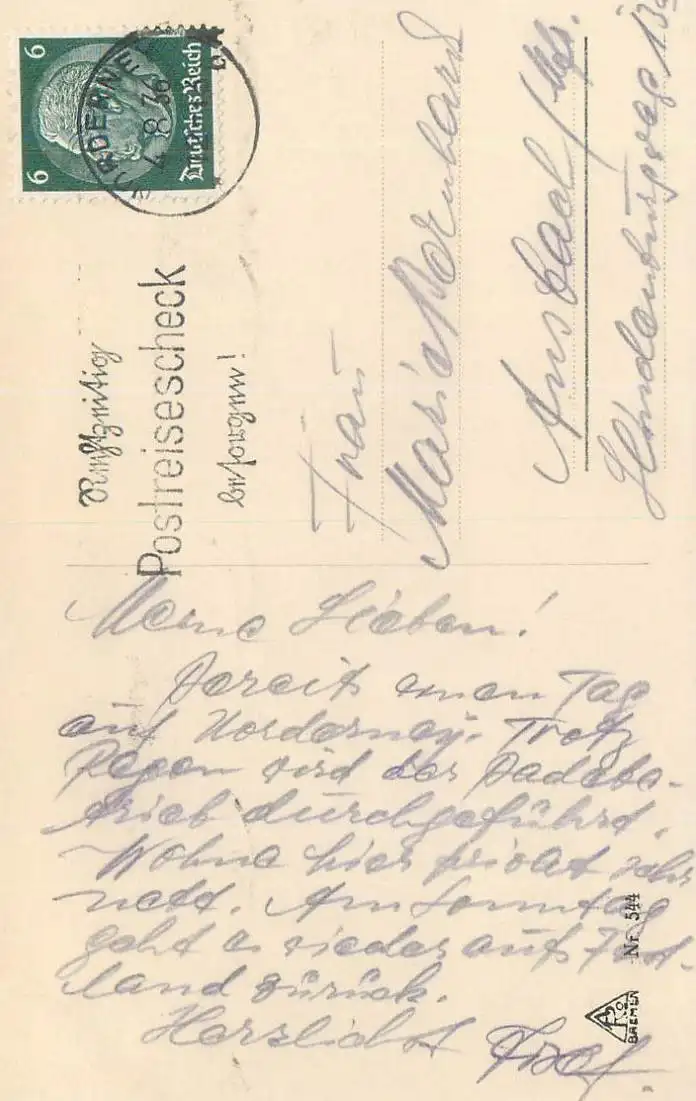 6 6
Deutsches Reich
NORDERNEY
4.8.36
Rechtzeitig
Postreisescheck
besorgen!
Frau
Marie
Ansbach/Mfr.
Hindenburgweg 13
Meine Lieben!
Bereits einen Tag
auf Norderney. Trotz
Regen wird der Badebe-
trieb durchgeführt.
Wohne hier privat sehr
nett. Am Sonntag
geht es wieder aufs Fest-
land zurück.
Herzlichst
Nr. 544
BREMEN